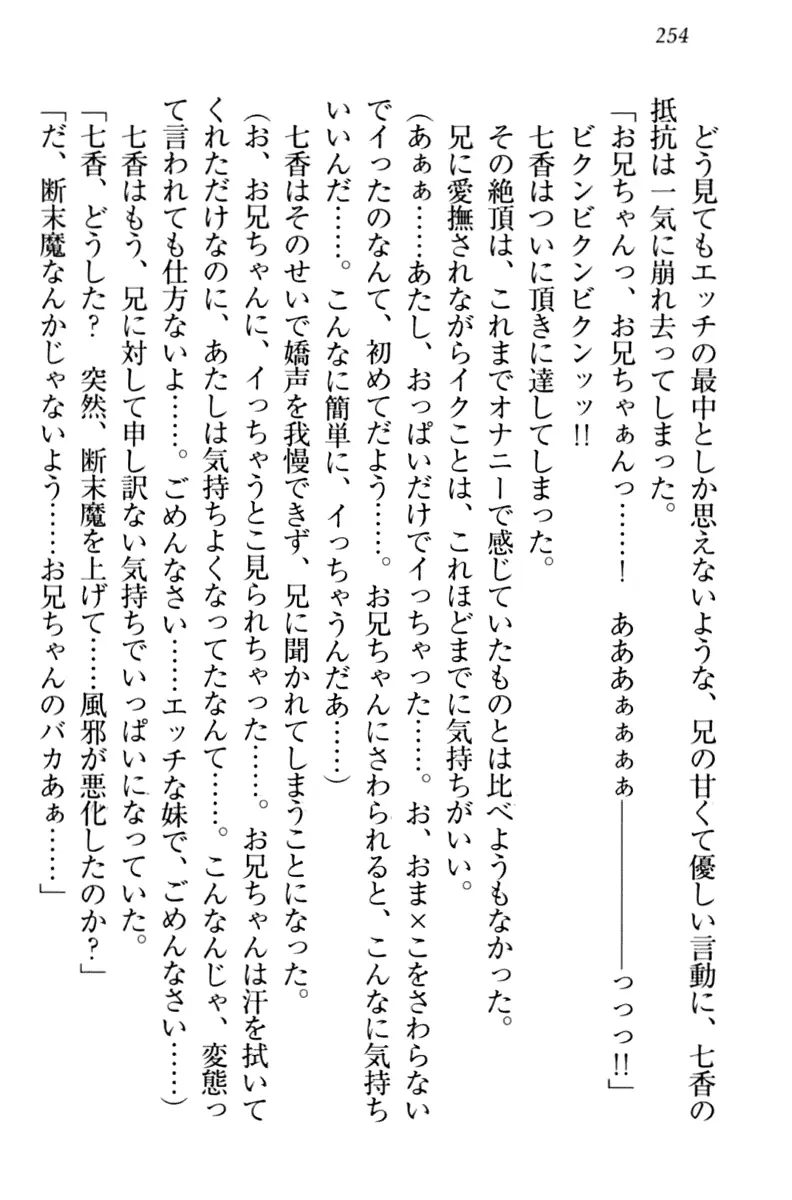 254
どう見てもエッチの最中としか思えないような、兄の甘くて優しい言動に、七香の
抵抗は一気に崩れ去ってしまった。
「お兄ちゃんっ、お兄ちゃぁんっ……！　あああぁぁぁぁ――――――っっっ!!」
ビクンビクンビクンッッ!!
七香はついに頂きに達してしまった。
その絶頂は、これまでオナニーで感じていたものとは比べようもなかった。
兄に愛撫されながらイクことは、これほどまでに気持ちがいい。
（あぁぁ……あたし、おっぱいだけでイっちゃった……。お、おま×こをさわらない
でイったのなんて、初めてだよう……。お兄ちゃんにさわられると、こんなに気持ち
いいんだ……。こんなに簡単に、イっちゃうんだあ……）
七香はそのせいで嬌声を我慢できず、兄に聞かれてしまうことになった。
（お、お兄ちゃんに、イっちゃうとこ見られちゃった……。お兄ちゃんは汗を拭いて
くれただけなのに、あたしは気持ちよくなってたなんて……。こんなんじゃ、変態っ
て言われても仕方ないよ……。ごめんなさい……エッチな妹で、ごめんなさい……）
七香はもう、兄に対して申し訳ない気持ちでいっぱいになっていた。
「七香、どうした？　突然、断末魔を上げて……風邪が悪化したのか？」
「だ、断末魔なんかじゃないよう……お兄ちゃんのバカあぁ……」